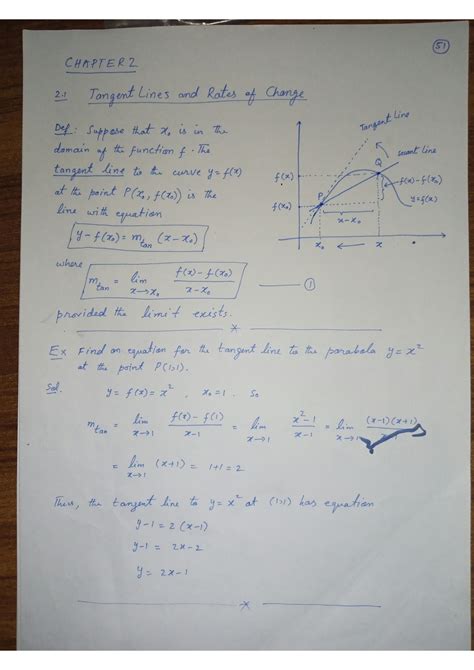 51
CHAPTER 2
2.1 Tangent Lines and Rates of Change
Def: Suppose that x₀ is in the
domain of the function f. The
tangent line to the curve y = f(x)
at the point P(x₀, f(x₀)) is the
line with equation
y - f(x₀) = m_tan (x - x₀)
where
m_tan = lim_{x→x₀} (f(x) - f(x₀))/(x - x₀) —— ①
provided the limit exists.
Tangent Line
secant line
Q
f(x)
f(x) - f(x₀)
P
y = f(x)
f(x₀)
x - x₀
x₀ ← x
Ex Find an equation for the tangent line to the parabola y = x²
at the point P(1,1).
Sol. y = f(x) = x², x₀ = 1. So
m_tan = lim_{x→1} (f(x) - f(1))/(x-1) = lim_{x→1} (x²-1)/(x-1) = lim_{x→1} (x-1)(x+1)
= lim_{x→1} (x+1) = 1+1 = 2
Thus, the tangent line to y = x² at (1,1) has equation
y-1 = 2(x-1)
y-1 = 2x-2
y = 2x-1